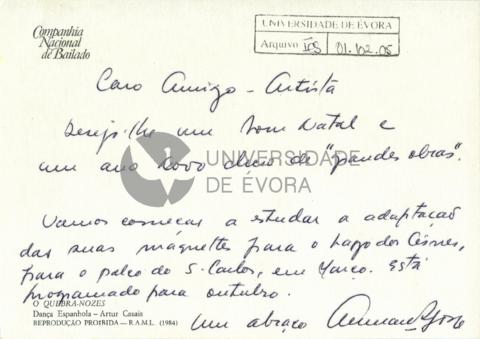 Companhia
Nacional
de Bailado
UNIVERSIDADE DE ÉVORA
Arquivo ICS 01.02.05
Caro Amigo - Artista
Desejo-lhe um bom Natal e
um ano novo cheio de "grandes obras".
UNIVERSIDADE
DE ÉVORA
Vamos começar a estudar a adaptação
das suas maquettes para o Lago dos Cisnes,
para o palco do S. Carlos, em Março. Está
programado para outubro.
O QUEBRA-NOZES
Dança Espanhola – Artur Casais
REPRODUÇÃO PROIBIDA – R.A.M.L. (1984)
Um abraço Armando Jorge